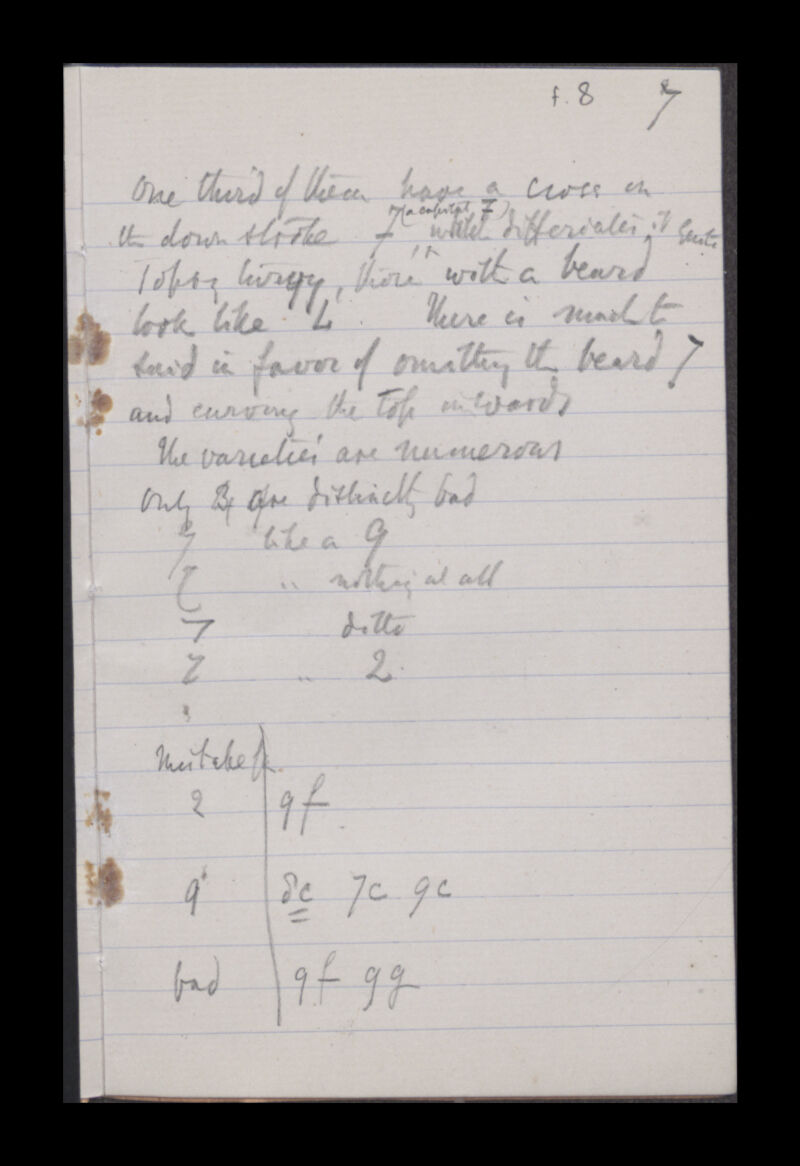 f. 8 7
One third of them have a cross on
(a capital F)
the down stroke 7 which differentiates it quite
look like L. There is much to
said in favor of omitting the beard 7
and curving the top inwards
The varieties are numerous
Only 3 4 are distinctly bad
7 like a 9
" nothing at all
7 ditto
7 " 2.
Mistake for
2 9f
9 8c 7c 9c
bad 9f 9g